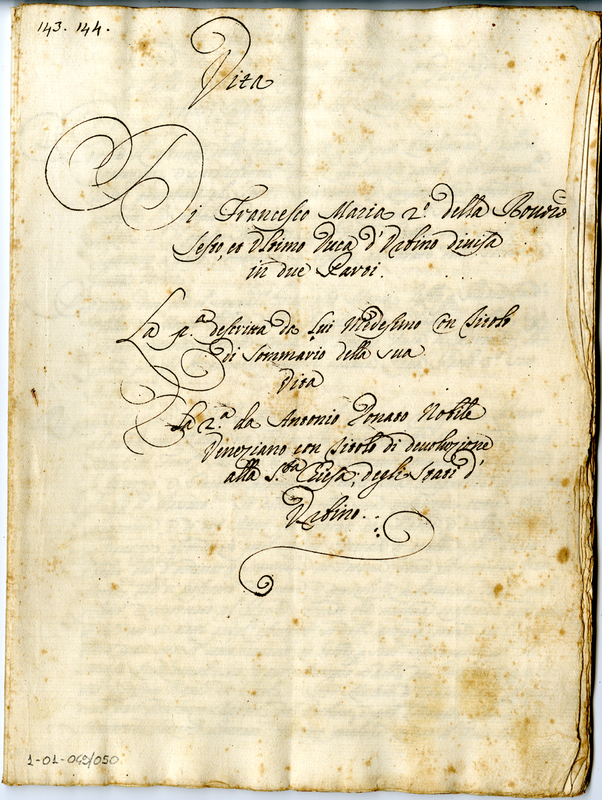 143. 144.
Vita
Di Francesco Maria 2.º della Rovere
Sesto, et Ultimo Duca d'Urbino divisa
in due Parti.
La p.ª descritta da Lui Medesimo con titolo
di sommario della sua
Vita
La 2.ª da Antonio Donato Nobile
Veneziano con titolo di devoluzione
alla S.ta Chiesa, degli Stati d'
Urbino.
1-01-042/050